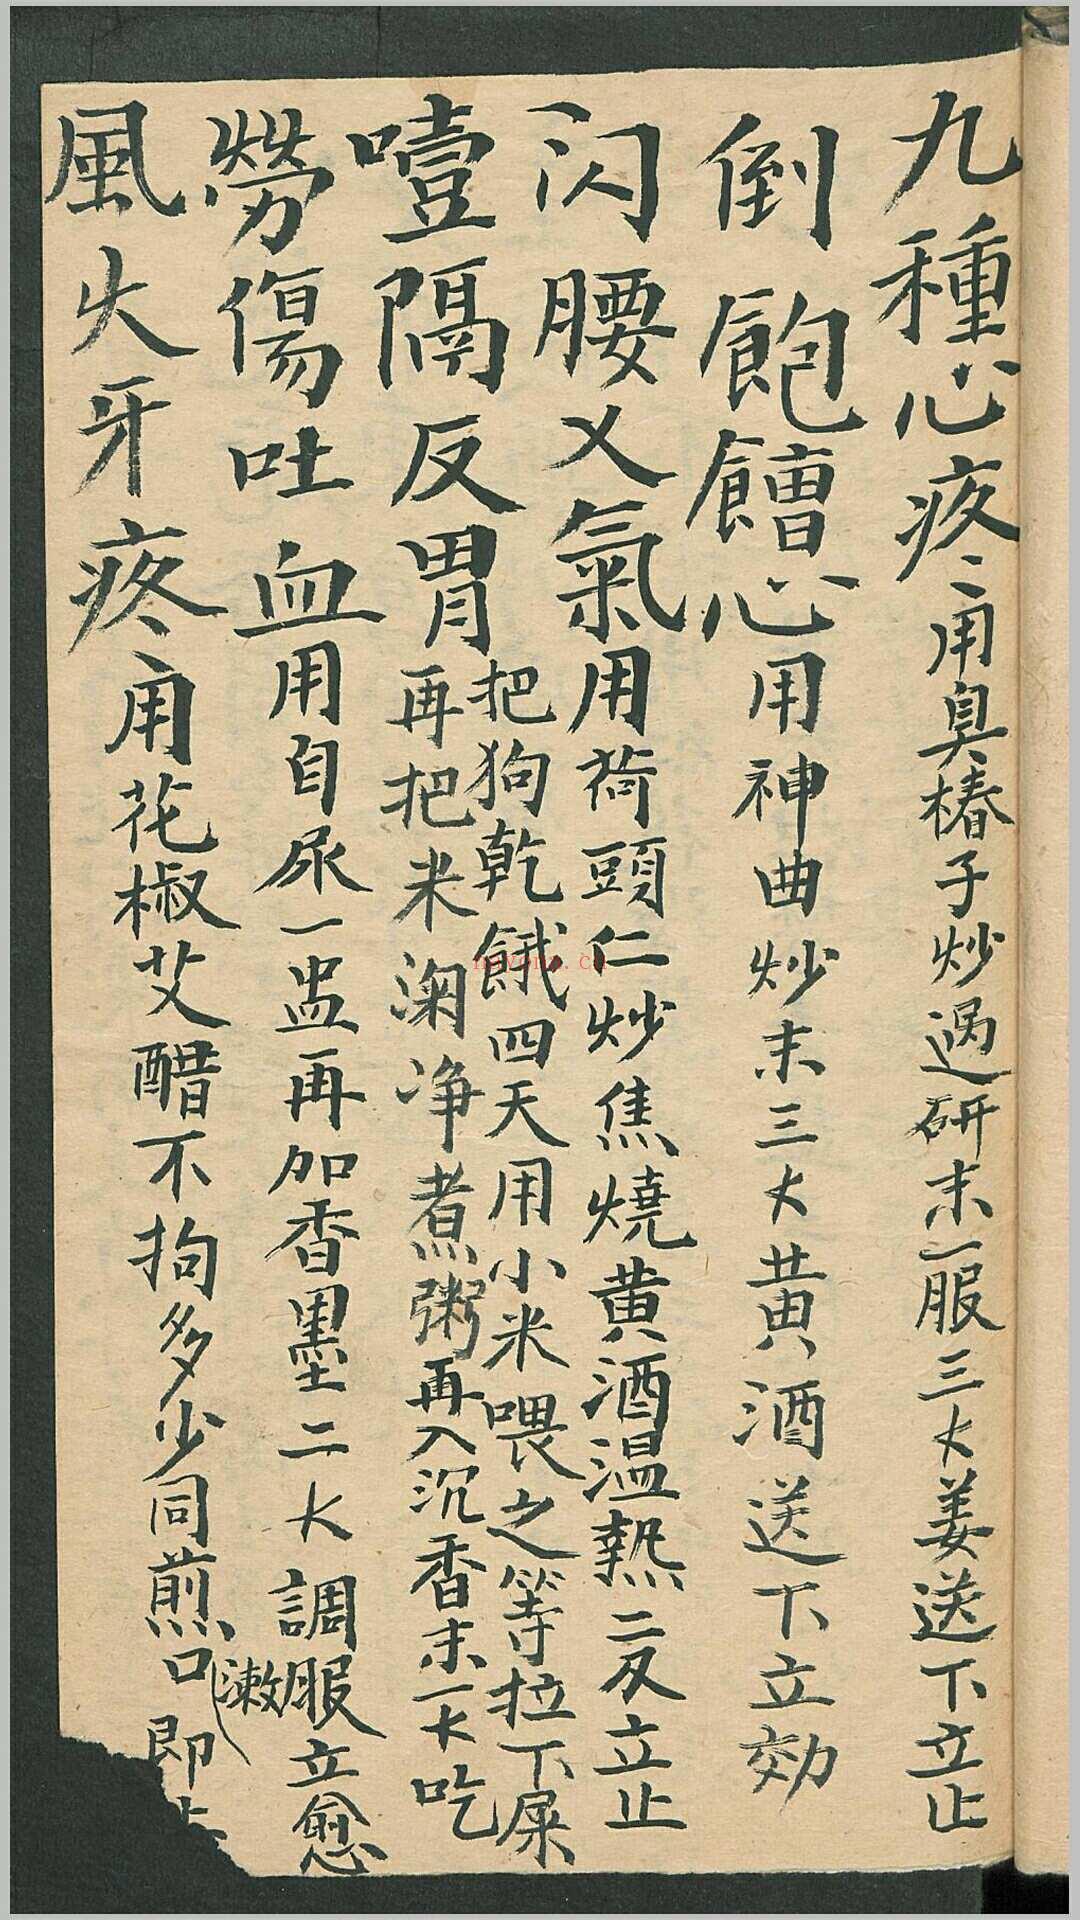 九種心疼用臭椿子炒过研末一服三大姜送下立止
倒飽饐心用神曲炒末三大黄酒送下立効
闪腰乂氣用荷頭仁炒焦燒黄酒温熱二反立止
噎隔反胃把狗乾餓四天用小米喂之等拉下屎
再把米淘净煮粥再入沉香末一大吃
勞傷吐血用自尿一盅再加香墨二大調服立愈
風火牙疼用花椒艾醋不拘多少同煎口漱即止